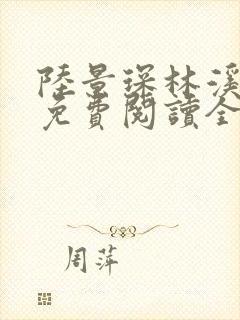 陸景琛林溪
免費閱讀全
周萍